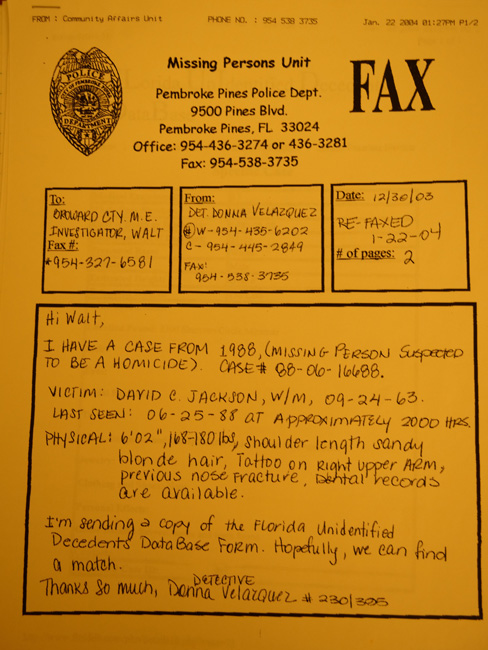 FROM : Community Affairs Unit PHONE NO. : 954 538 3735 Jan. 22 2004 01:27PM P1/2
POLICE
PEMBROKE PINES
DEPARTMENT
Missing Persons Unit
FAX
Pembroke Pines Police Dept.
9500 Pines Blvd.
Pembroke Pines, FL 33024
Office: 954-436-3274 or 436-3281
Fax: 954-538-3735
To:
BROWARD CTY. M.E.
INVESTIGATOR, WALT
Fax #:
*954-327-6581
From:
DET. DONNA VELAZQUEZ
# W-954-435-6202
C-954-445-2849
FAX:
954-538-3735
Date: 12/30/03
RE-FAXED
1-22-04
# of pages: 2
Hi Walt,
I HAVE A CASE FROM 1988, (MISSING PERSON SUSPECTED
TO BE A HOMICIDE). CASE# 88-06-16688.
VICTIM: DAVID C. JACKSON, W/M, 09-24-63.
LAST SEEN: 06-25-88 AT APPROXIMATELY 2000 HRS.
PHYSICAL: 6'02", 168-180 lbs, shoulder length sandy
blonde hair, Tattoo on Right upper ARM,
previous nose fracture, Dental records
are available.
I'm sending a copy of the Florida Unidentified
Decedents DataBase Form. Hopefully, we can find
a match.
Thanks So much, DETECTIVE Donna Velazquez # 230/395